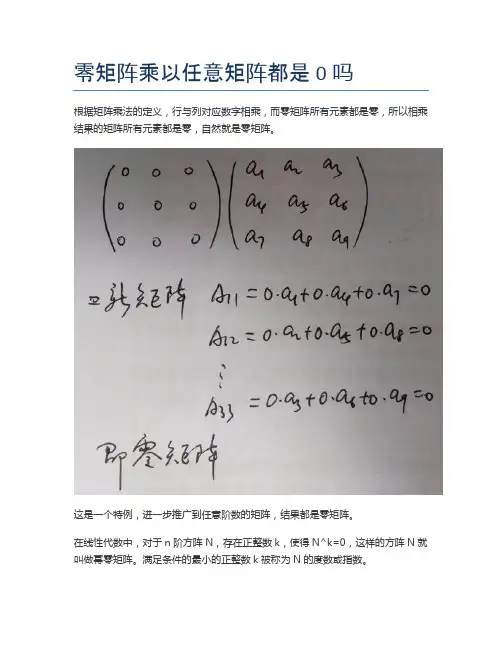 零矩阵乘以任意矩阵都是0吗
根据矩阵乘法的定义，行与列对应数字相乘，而零矩阵所有元素都是零，所以相乘
结果的矩阵所有元素都是零，自然就是零矩阵。
(0 0 0) (a1 a2 a3)
(0 0 0) (a4 a5 a6)
(0 0 0) (a7 a8 a9)
新矩阵 A11=0·a1+0·a4+0·a7=0
A12=0·a2+0·a5+0·a8=0
⋮
A33=0·a3+0·a6+0·a9=0
即零矩阵
这是一个特例，进一步推广到任意阶数的矩阵，结果都是零矩阵。
在线性代数中，对于 n 阶方阵 N，存在正整数 k，使得 N^k=0，这样的方阵 N 就
叫做幂零矩阵。满足条件的最小的正整数 k 被称为 N 的度数或指数。